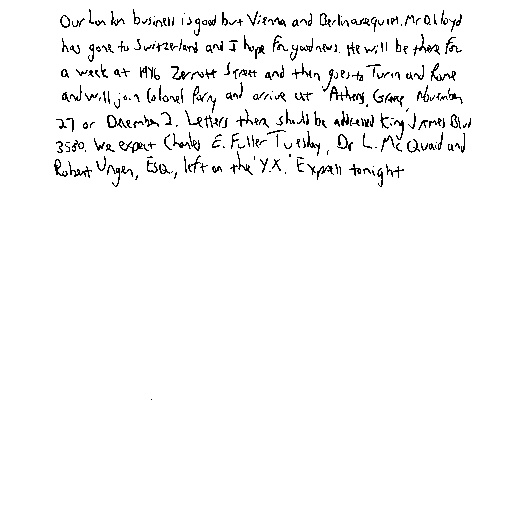 Our London business is good but Vienna and Berlin are quiet. Mr D. Lloyd
has gone to Switzerland and I hope for good news. He will be there for
a week at 1496 Zermott Street and then goes to Turin and Rome
and will join Colonel Parry and arrive at Athens, Greece, November
27 or December 2. Letters there should be addressed King James Blvd
3580. We expect Charles E. Fuller Tuesday, Dr L. McQuaid and
Robert Unger, Esq., left on the 'Y.X.' Express tonight